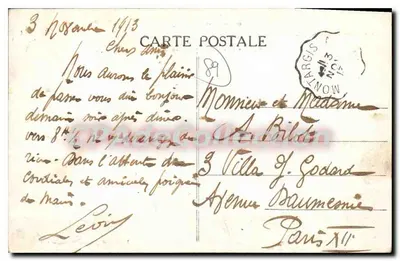 3 Novembre 1913
Chers amis
CARTE POSTALE
Nous aurons le plaisir
de passer vous dire bonjour
demain soir après dîner
vers 8h
Dans l'attente de
cordiales et amicales poignées
de mains.
Léon
89
MONTARGIS
Monsieur et Madame
A.
3 Villa J. Godard
Avenue Daumesnil
Paris XII